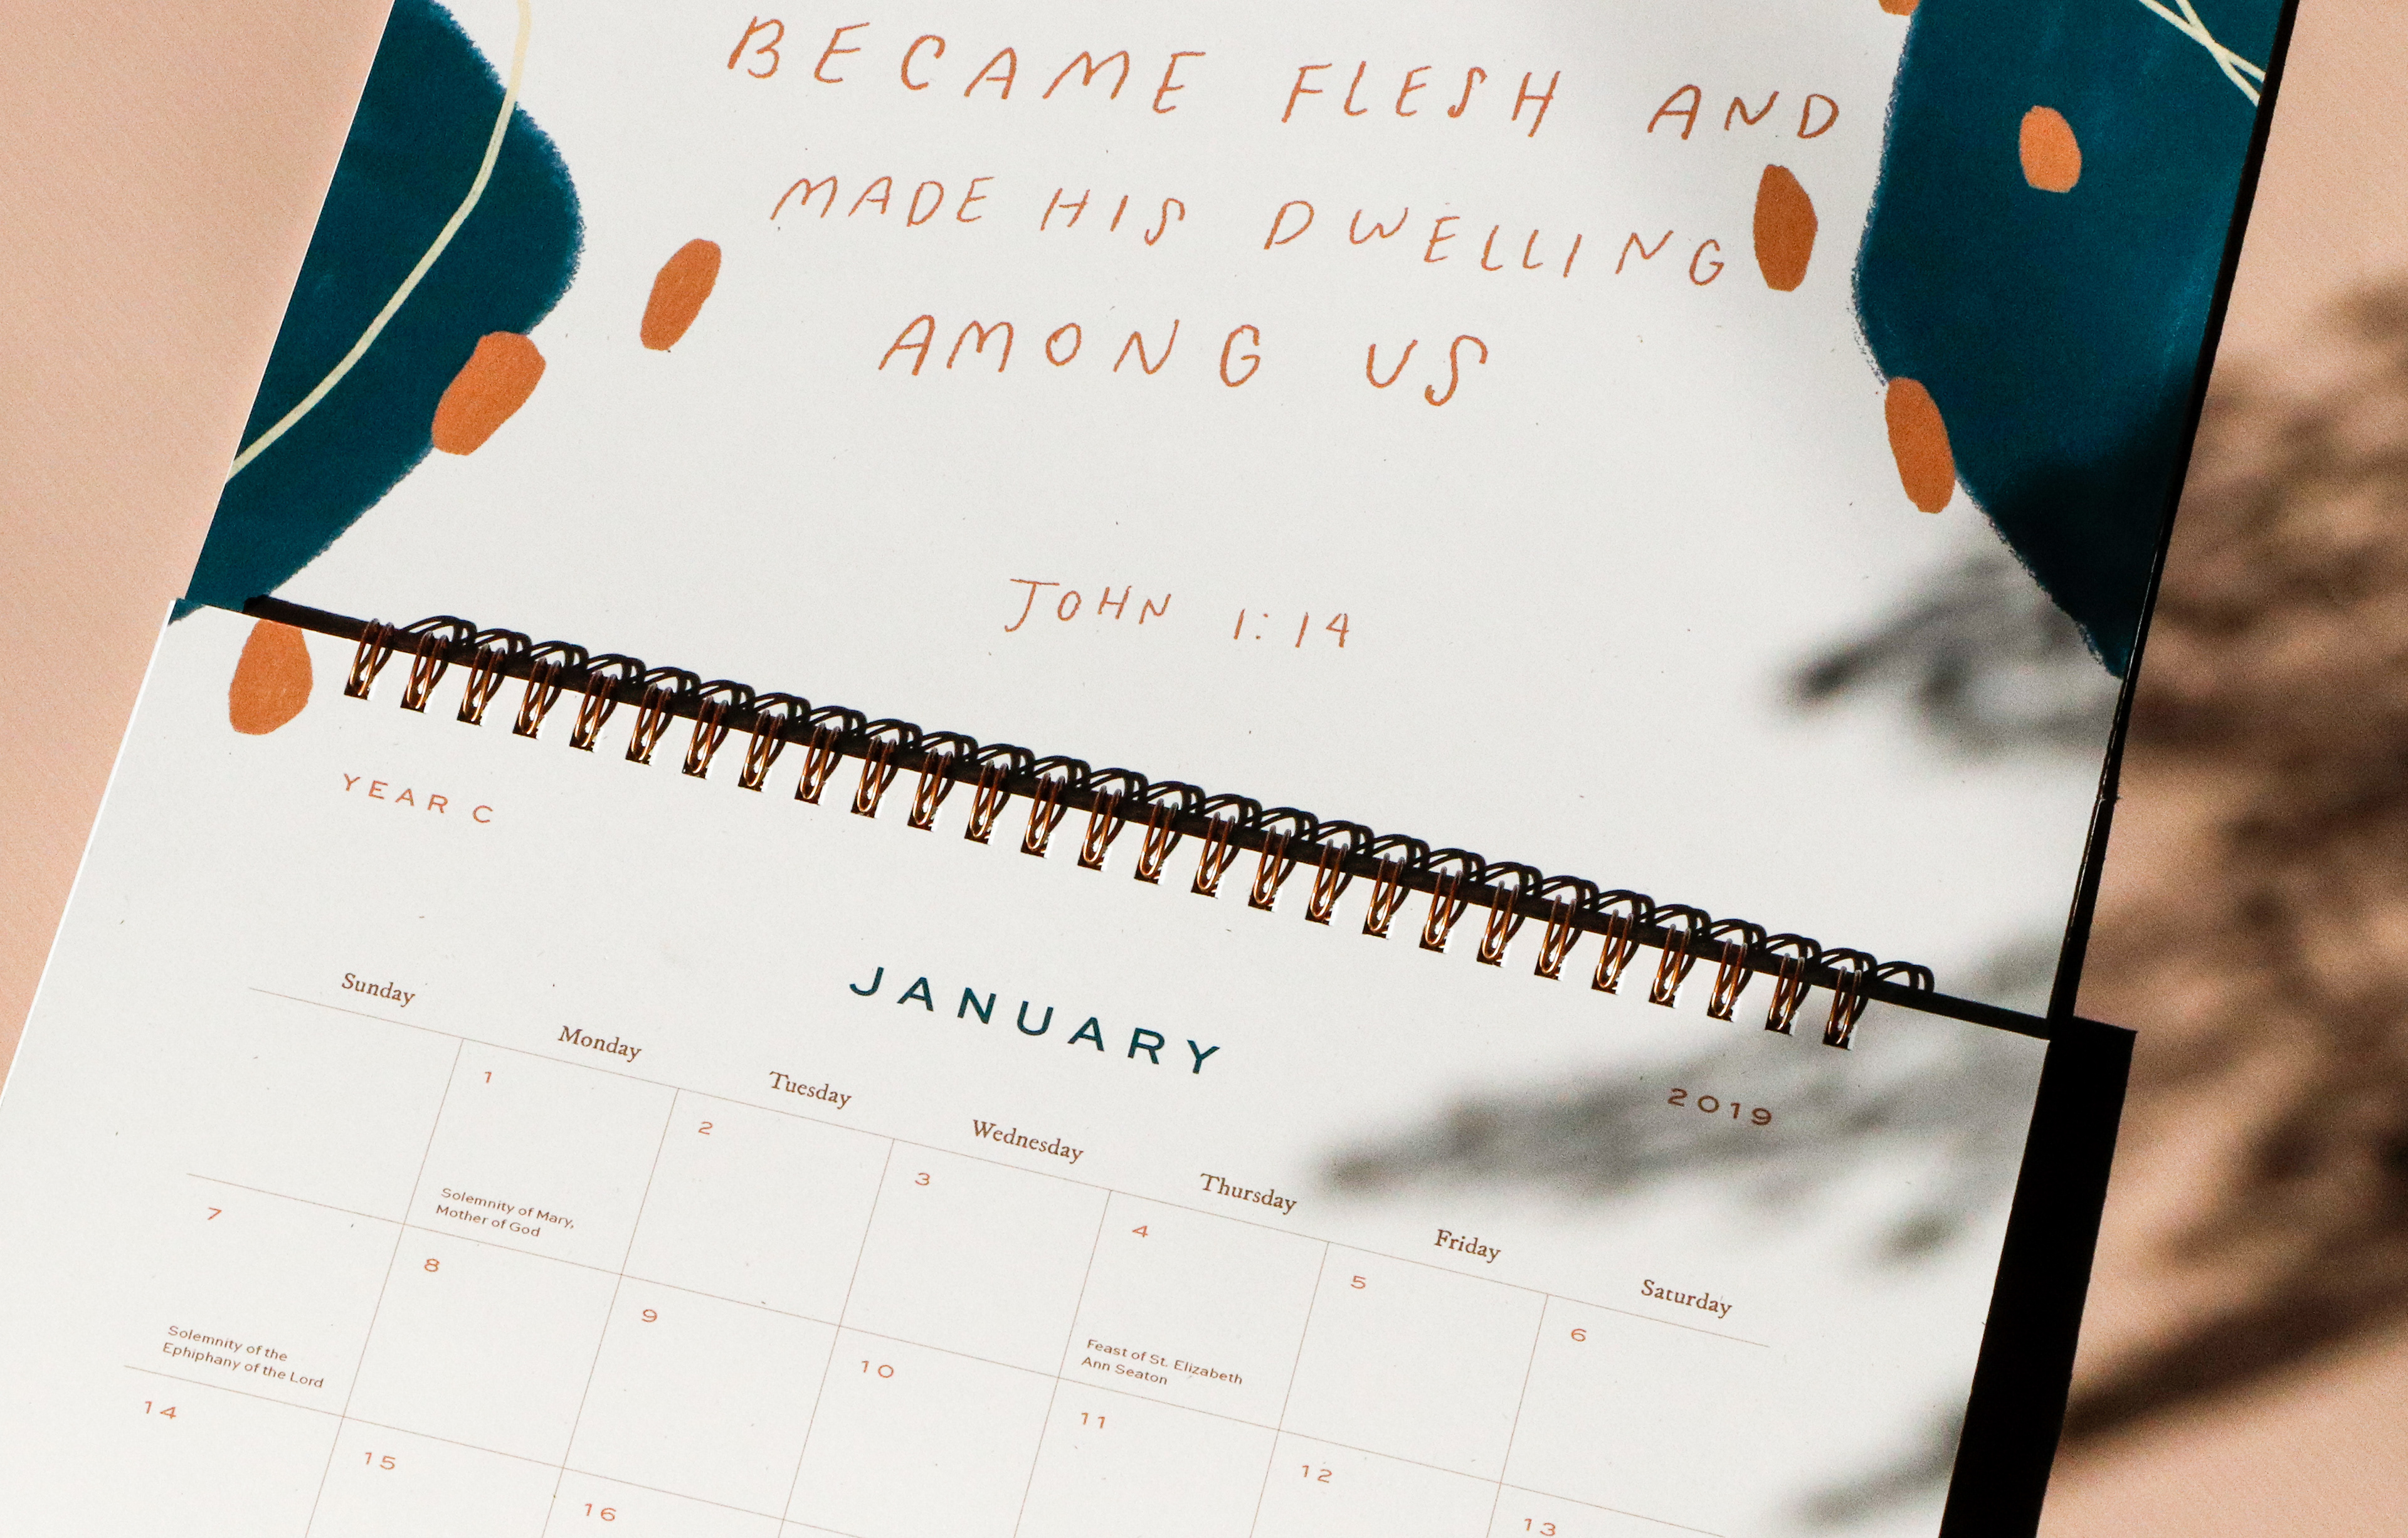 BECAME FLESH AND
MADE HIS DWELLING
AMONG US
JOHN 1:14
YEAR C
JANUARY
2019
Sunday Monday Tuesday Wednesday Thursday Friday Saturday
1 2 3 4 5 6
Solemnity of Mary,
Mother of God
Feast of St. Elizabeth
Ann Seaton
7 8 9 10 11 12 13
Solemnity of the
Ephiphany of the Lord
14 15 16